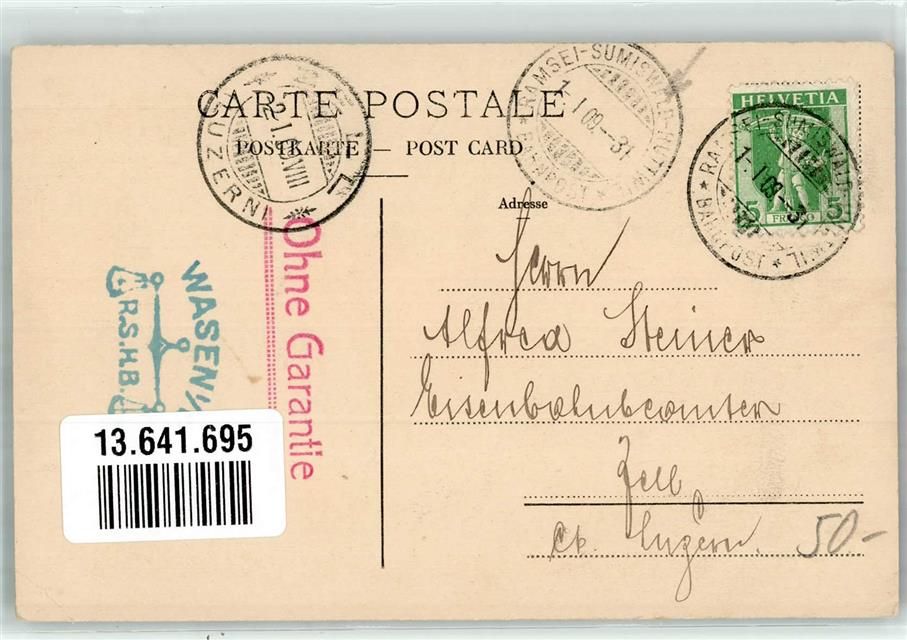 CARTE POSTALE
POSTKARTE — POST CARD
Adresse
Herrn
Alfred Steiner
Eisenbahnbeamter
Zell
Ct. Luzern.
50-
HELVETIA
5 FRANCO 5
RAMSEI-SUMISWALD-HUTTWIL
1. I 09.-31
BAHNPOST
RAMSEI-SUMISWALD-HUTTWIL
1. I 09.-31
ZELL
2. I. 09. VIII
(LUZERN)
Ohne Garantie
WASEN i/
R.S.H.B.
13.641.695